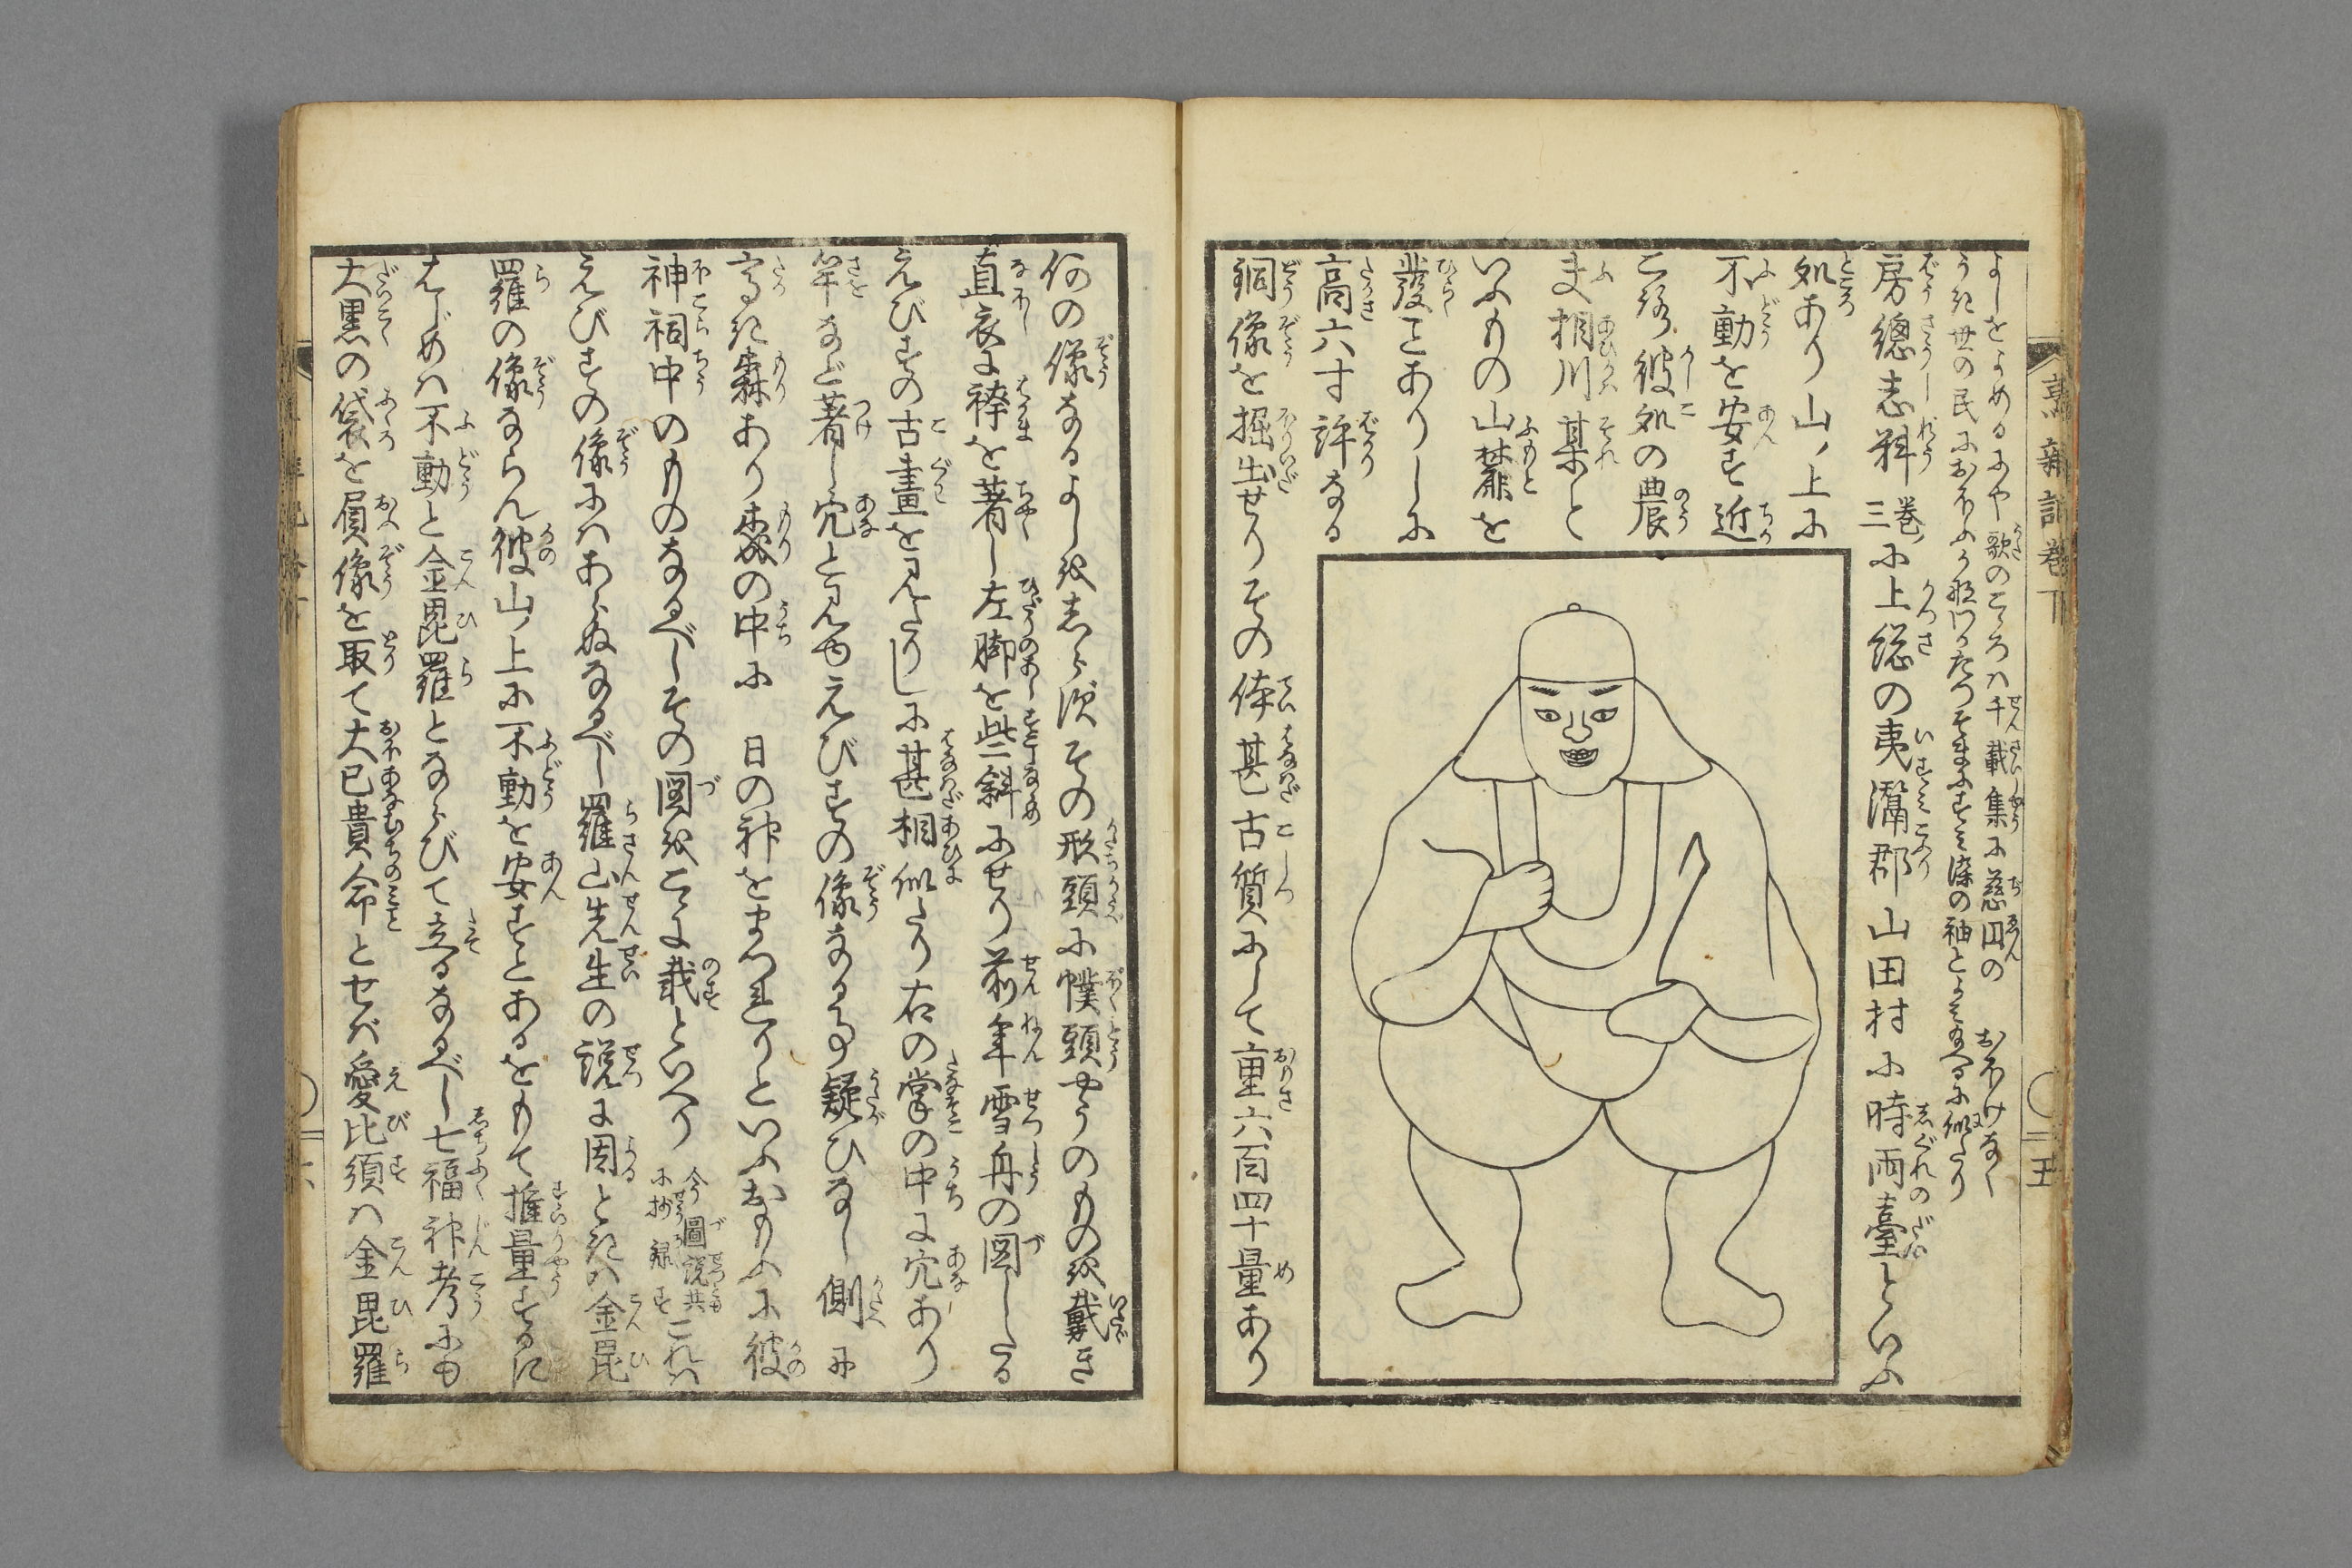 よしをよめるにや歌のこゝろハ千載集に慈円の おほけなく
うき世の民におほふかな我たつそまにすミ染の袖とよみ給へるに似たり
房總志料三巻に上総の夷灊郡山田村に時雨臺といふ
処あり山ノ上に
不動を安す近
ころ彼処の農
夫相川某と
いふもの山麓を
發ことありしに
高六寸許なる
銅像を掘出せりその体甚古質にして重六百四十量あり
何の像なるよしをしらずその形頭に幞頭やうのものを戴き
直衣に袴を著し左脚を些斜にせり前年雪舟の図したる
えびすの古畫を見たりしに甚相似たり右の掌の中に穴あり
竿など著し穴と見ゆえびすの像なる事疑ひなし側に
高き森あり森の中に 日の神をまつれりといふおもふに彼
神祠中のものなるべしその図をこゝに載といへり
今圖説共
に抄録す
これハ
えびすの像にハあらぬなるべし羅山先生の説に因ときハ金毘
羅の像ならん彼山ノ上に不動を安すとあるをもて推量するに
はじめハ不動と金毘羅とならびて立るなるべし七福神考にも
大黒の袋を屓像を取て大己貴命とせバ愛比須ハ金毘羅
巻下
五